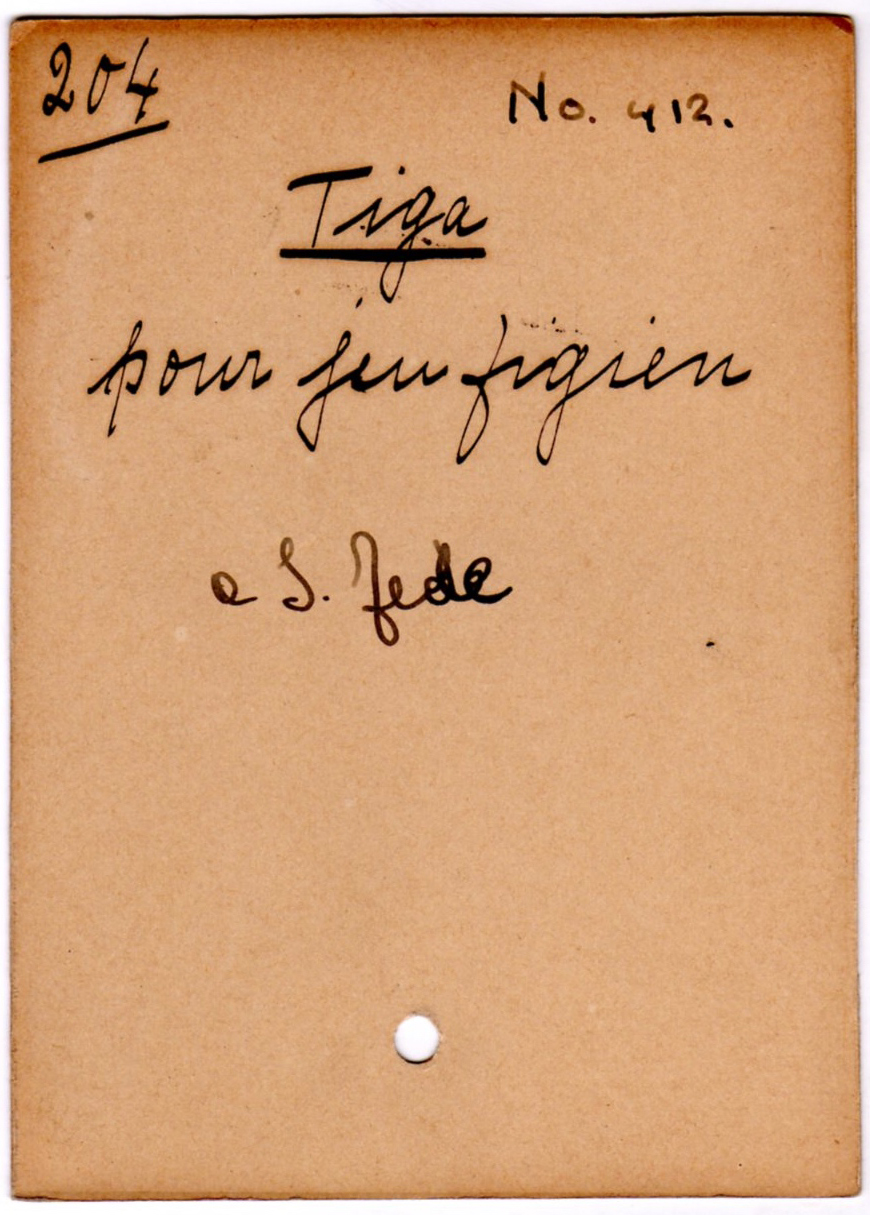 204
No. 412.
Tiga
pour jeu figien
a S. Fede